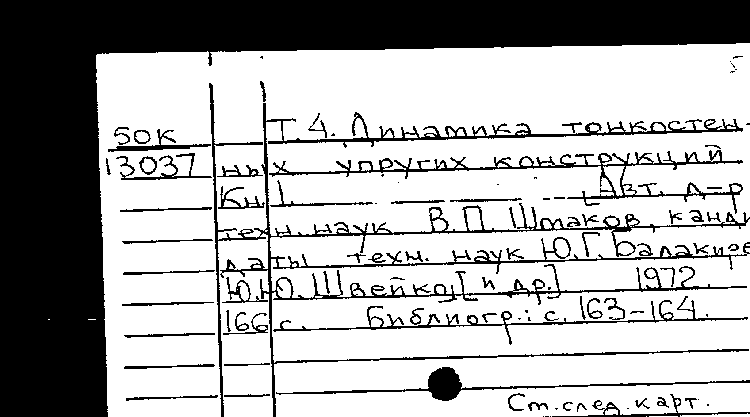 5
50К Т. 4. Динамика тонкостен-
13037 ных упругих конструкций
Кн. 1. [Авт. д-р
техн. наук В.П. Шмаков, канди
даты техн. наук Ю.Г. Балакирев
Ю.Ю. Швейко [и др.] 1972.
166 с. Библиогр.: с. 163-164.
Ст. след. карт.